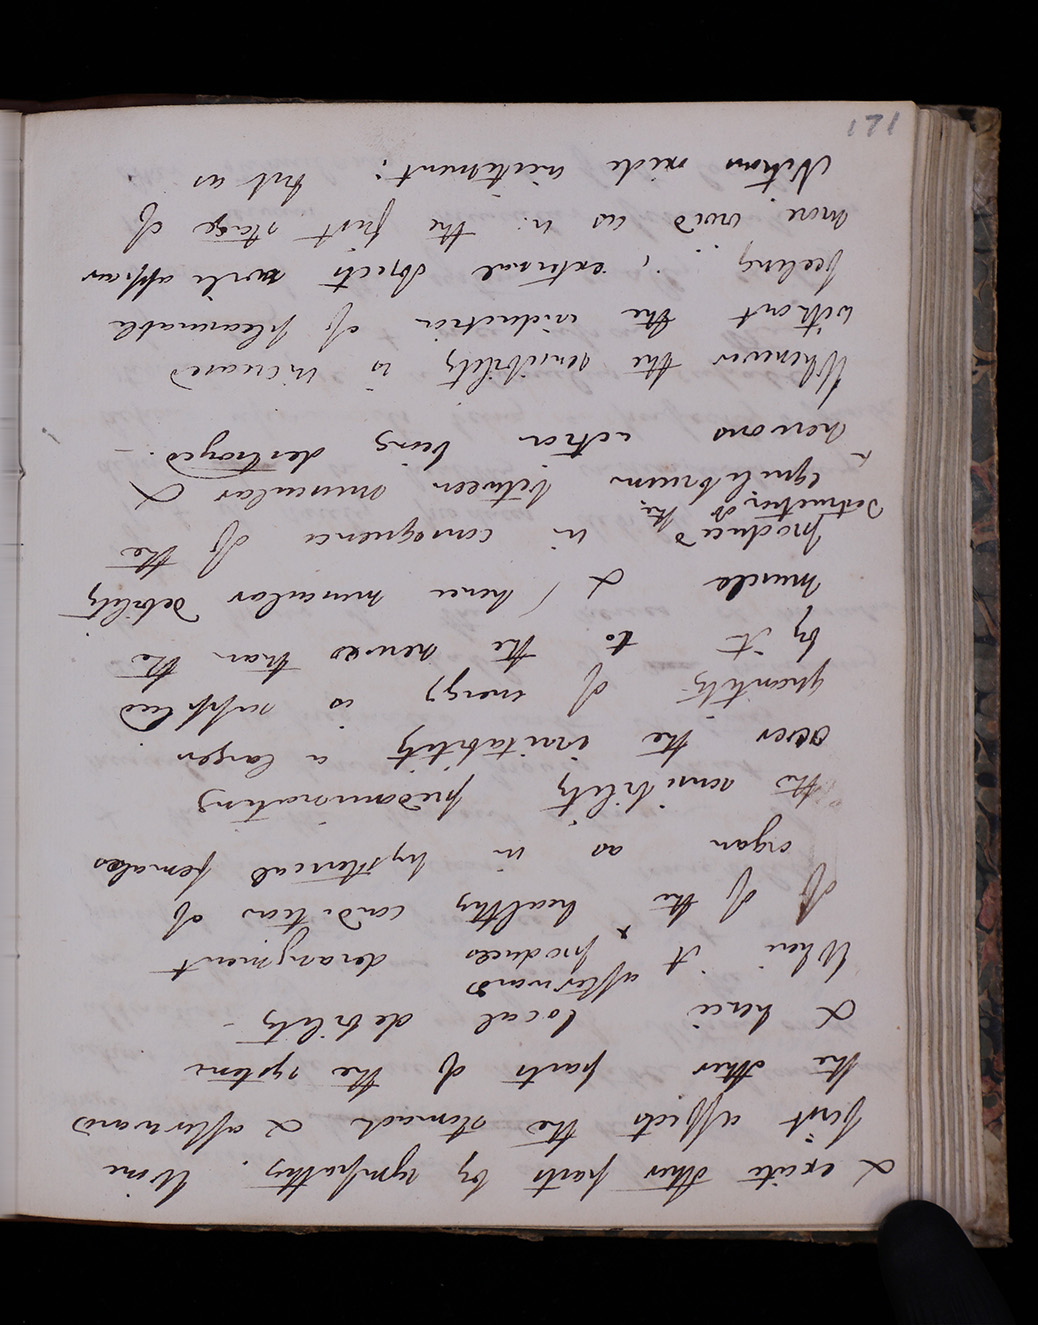 171
& excite other parts by sympathy. Wine
first affects the stomach & afterward
the other parts of the system
& hence local debility –
When it afterwards produces derangement
of of the healthy condition of
organ as in hysterical females
the sensibility predominating
over the irritability a larger
quantity of energy is supplied
by it to the nerves than the
muscle & (hence muscular debility
produced in consequence of the
destruction of the
equilibrium between muscular &
nervous action being destroyed. –
Whenever the sensibility is increased
without the induction of pleasurable
feeling, external objects will appear
more vivid as in the first stage of
Nitrous oxide excitement: but as